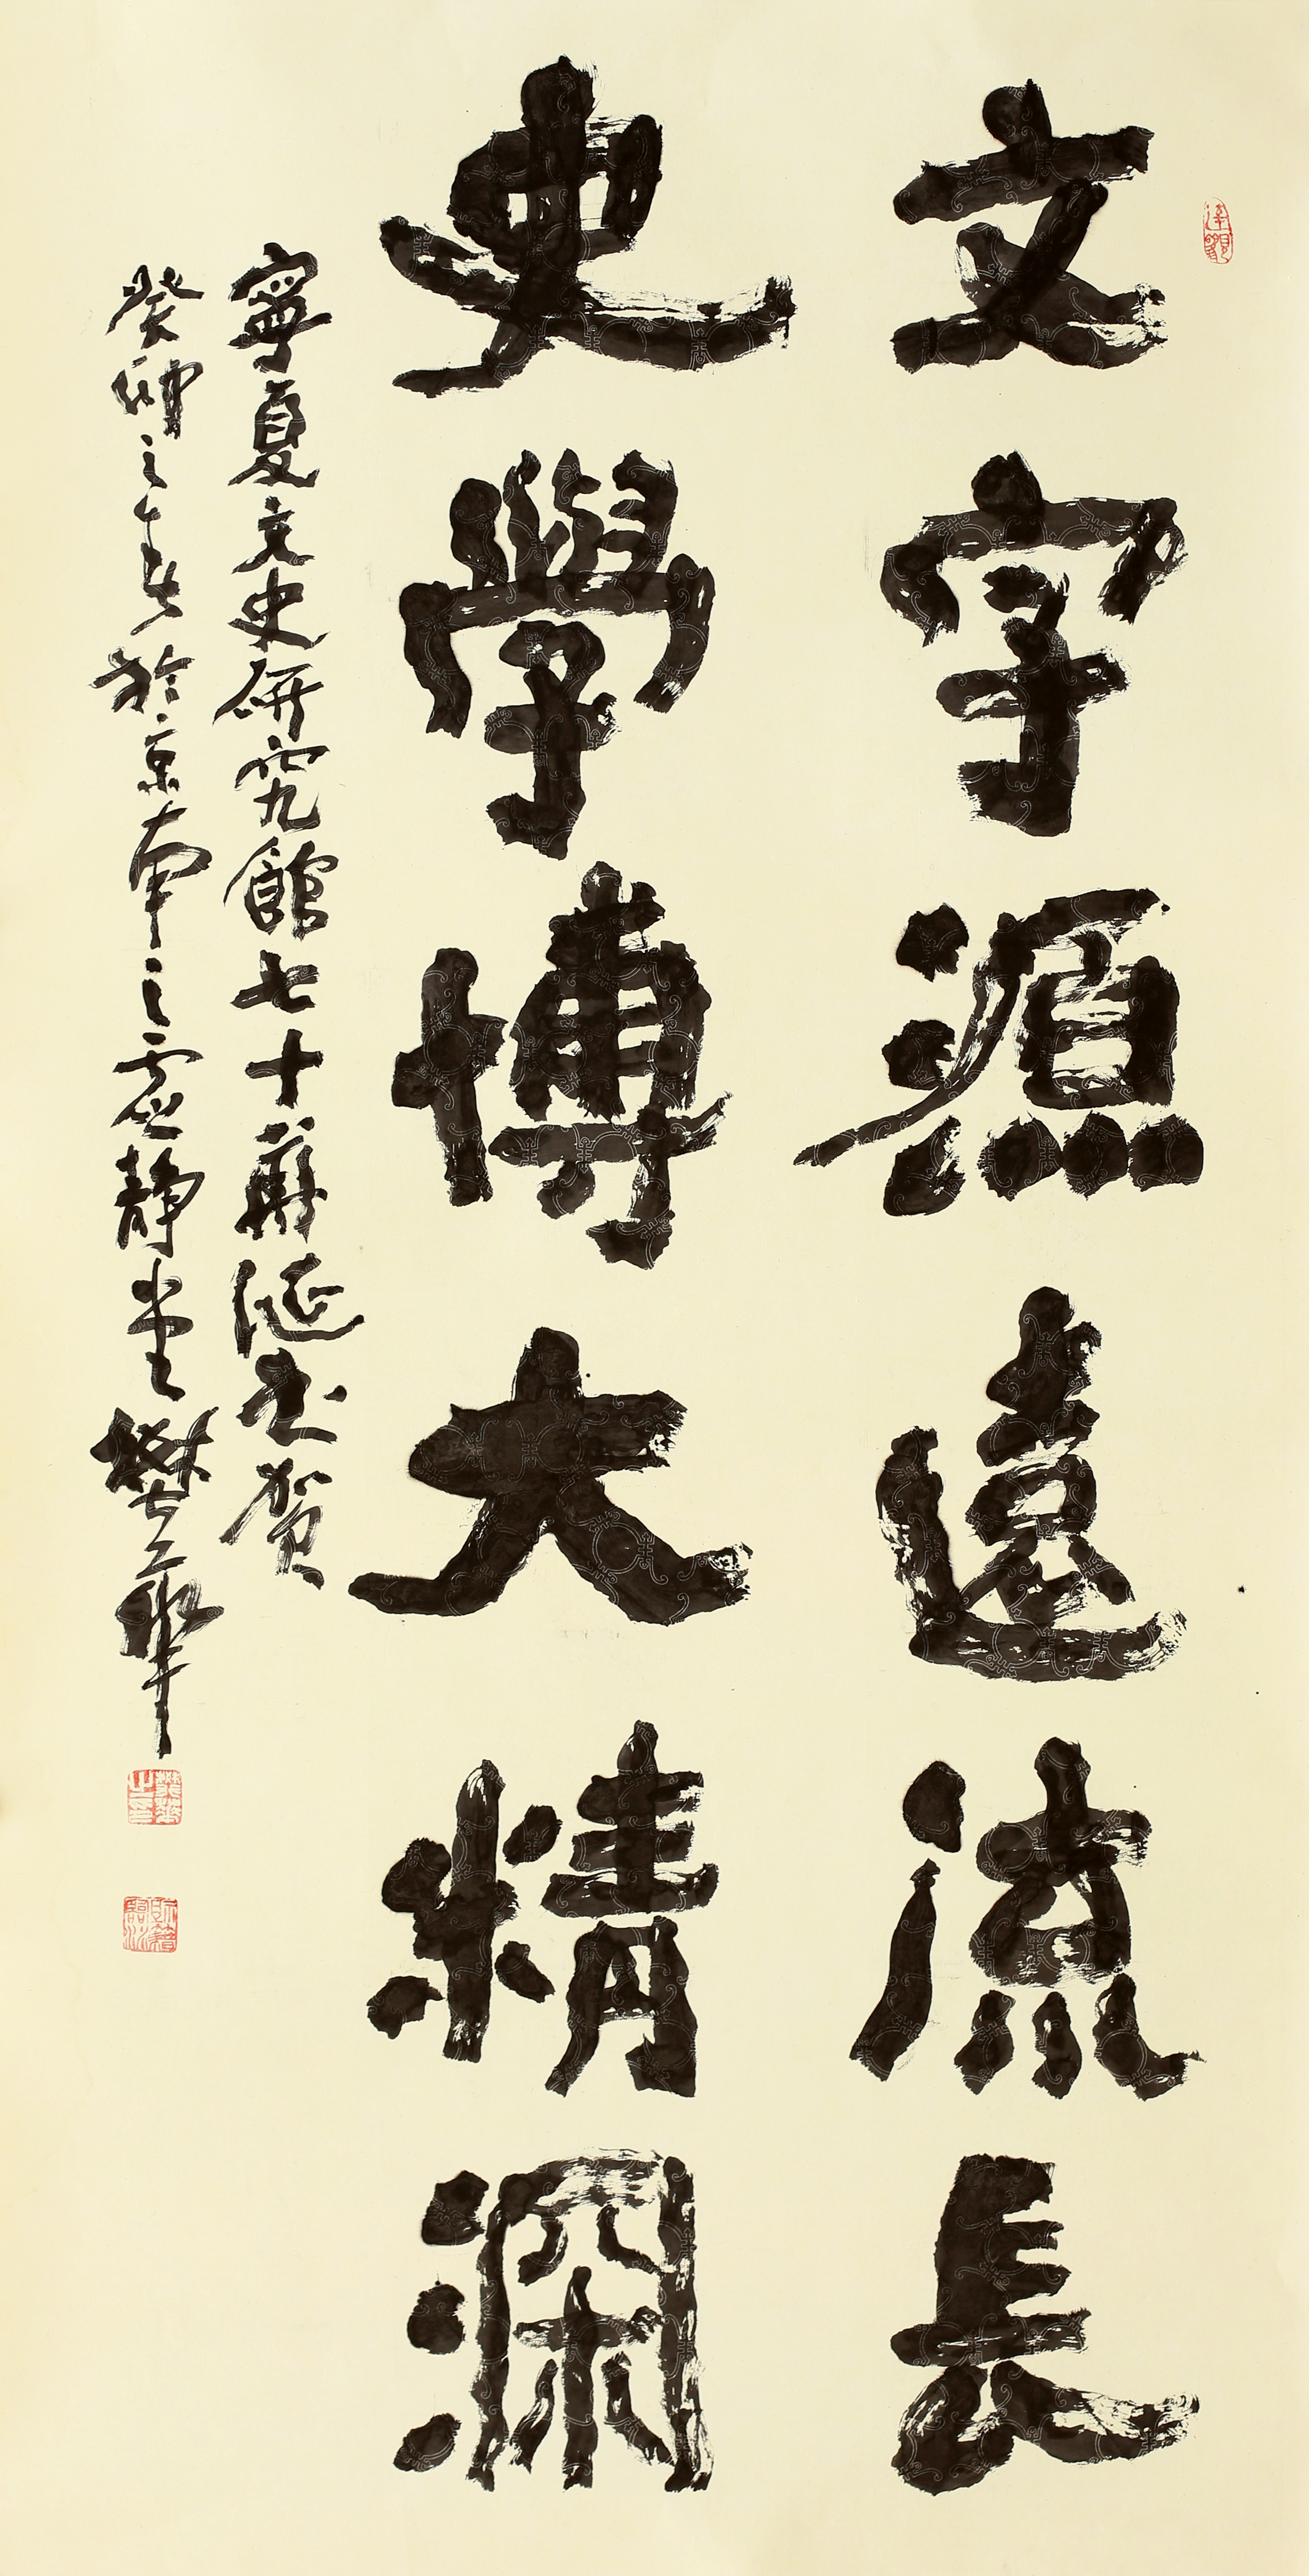 文字源遠流長
史學博大精深
寧夏文史研究館七十華誕書賀
癸卯之春於京南之虛靜堂樊華
樊華之印